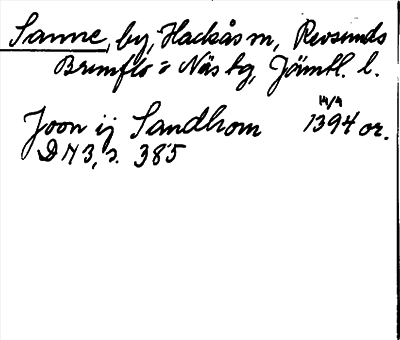 Sanne, by, Hackås sn, Revsunds
Brunflo o Näs tg, Jämtl. l.
14/9
Joon ij Sandhom 1394 or.
DN 3, s. 385